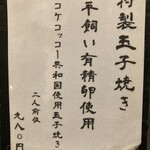 特製玉子焼き
平飼い有精卵使用
コケコッコー共和国使用玉子焼き
二人前位
九八〇円